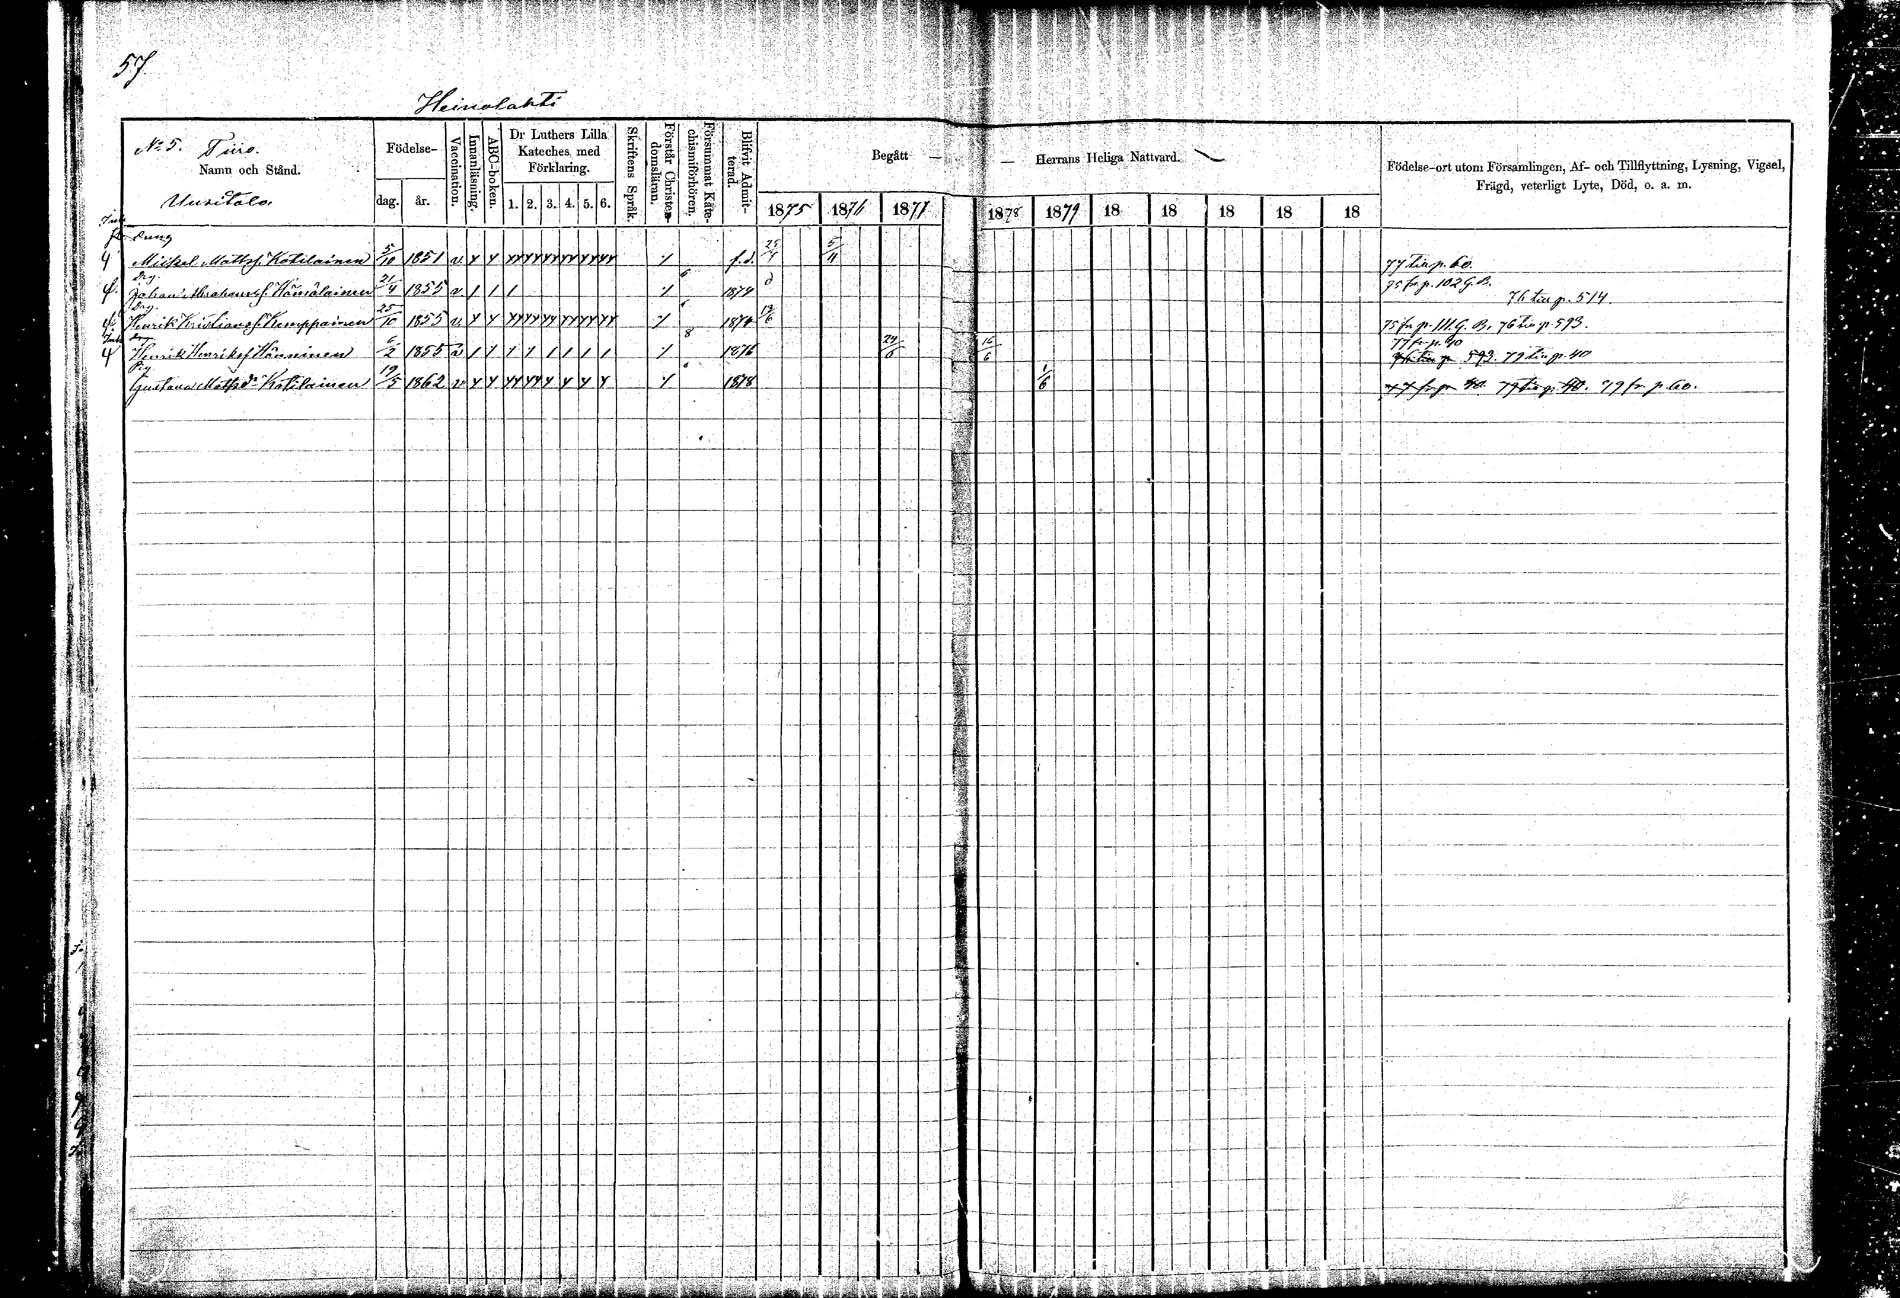 57.
Heinolahti
No 5. Turo.
Namn och Stånd.
Uusitalo.
Födelse-
dag. år.
Vaccination.
Innanläsning.
ABC-boken.
Dr Luthers Lilla Kateches, med Förklaring.
1. 2. 3. 4. 5. 6.
Skriftens Språk.
Förstår Christendomsläran.
Försummat Katechismiförhören,
Blifvit Admitterad.
Begått — — Herrans Heliga Nattvard.
1875 1876 1877 1878 1879 18 18 18 18 18
Födelse-ort utom Församlingen, Af- och Tillflyttning, Lysning, Vigsel,
Frägd, veterligt Lyte, Död, o. a. m.
Dräng
Mickel Mattss. Kotilainen 5/10 1851 v. f.d. 25/4 5/11 77 till p. 60.
Drg.
Johan Abrahamss. Hämäläinen 21/4 1855 v. 1874 75 fr p. 102 G.B.
76 till p. 514.
Drg
Henrik Kristianss. Kemppainen 25/10 1855 v. 1874 13/6 75 fr p. 111 G. B. 76 till p. 593.
77 fr p. 40
Drg
Henrik Henrikss. Hänninen 6/2 1855 v 8 1876 24/6 16/6 593. 79 till p. 40
Pig
Gustava Matsdr Kotilainen 19/5 1862 v 1878 1/6 77 fr p 40. 79 till p. 40. 79 fr. p. 60.